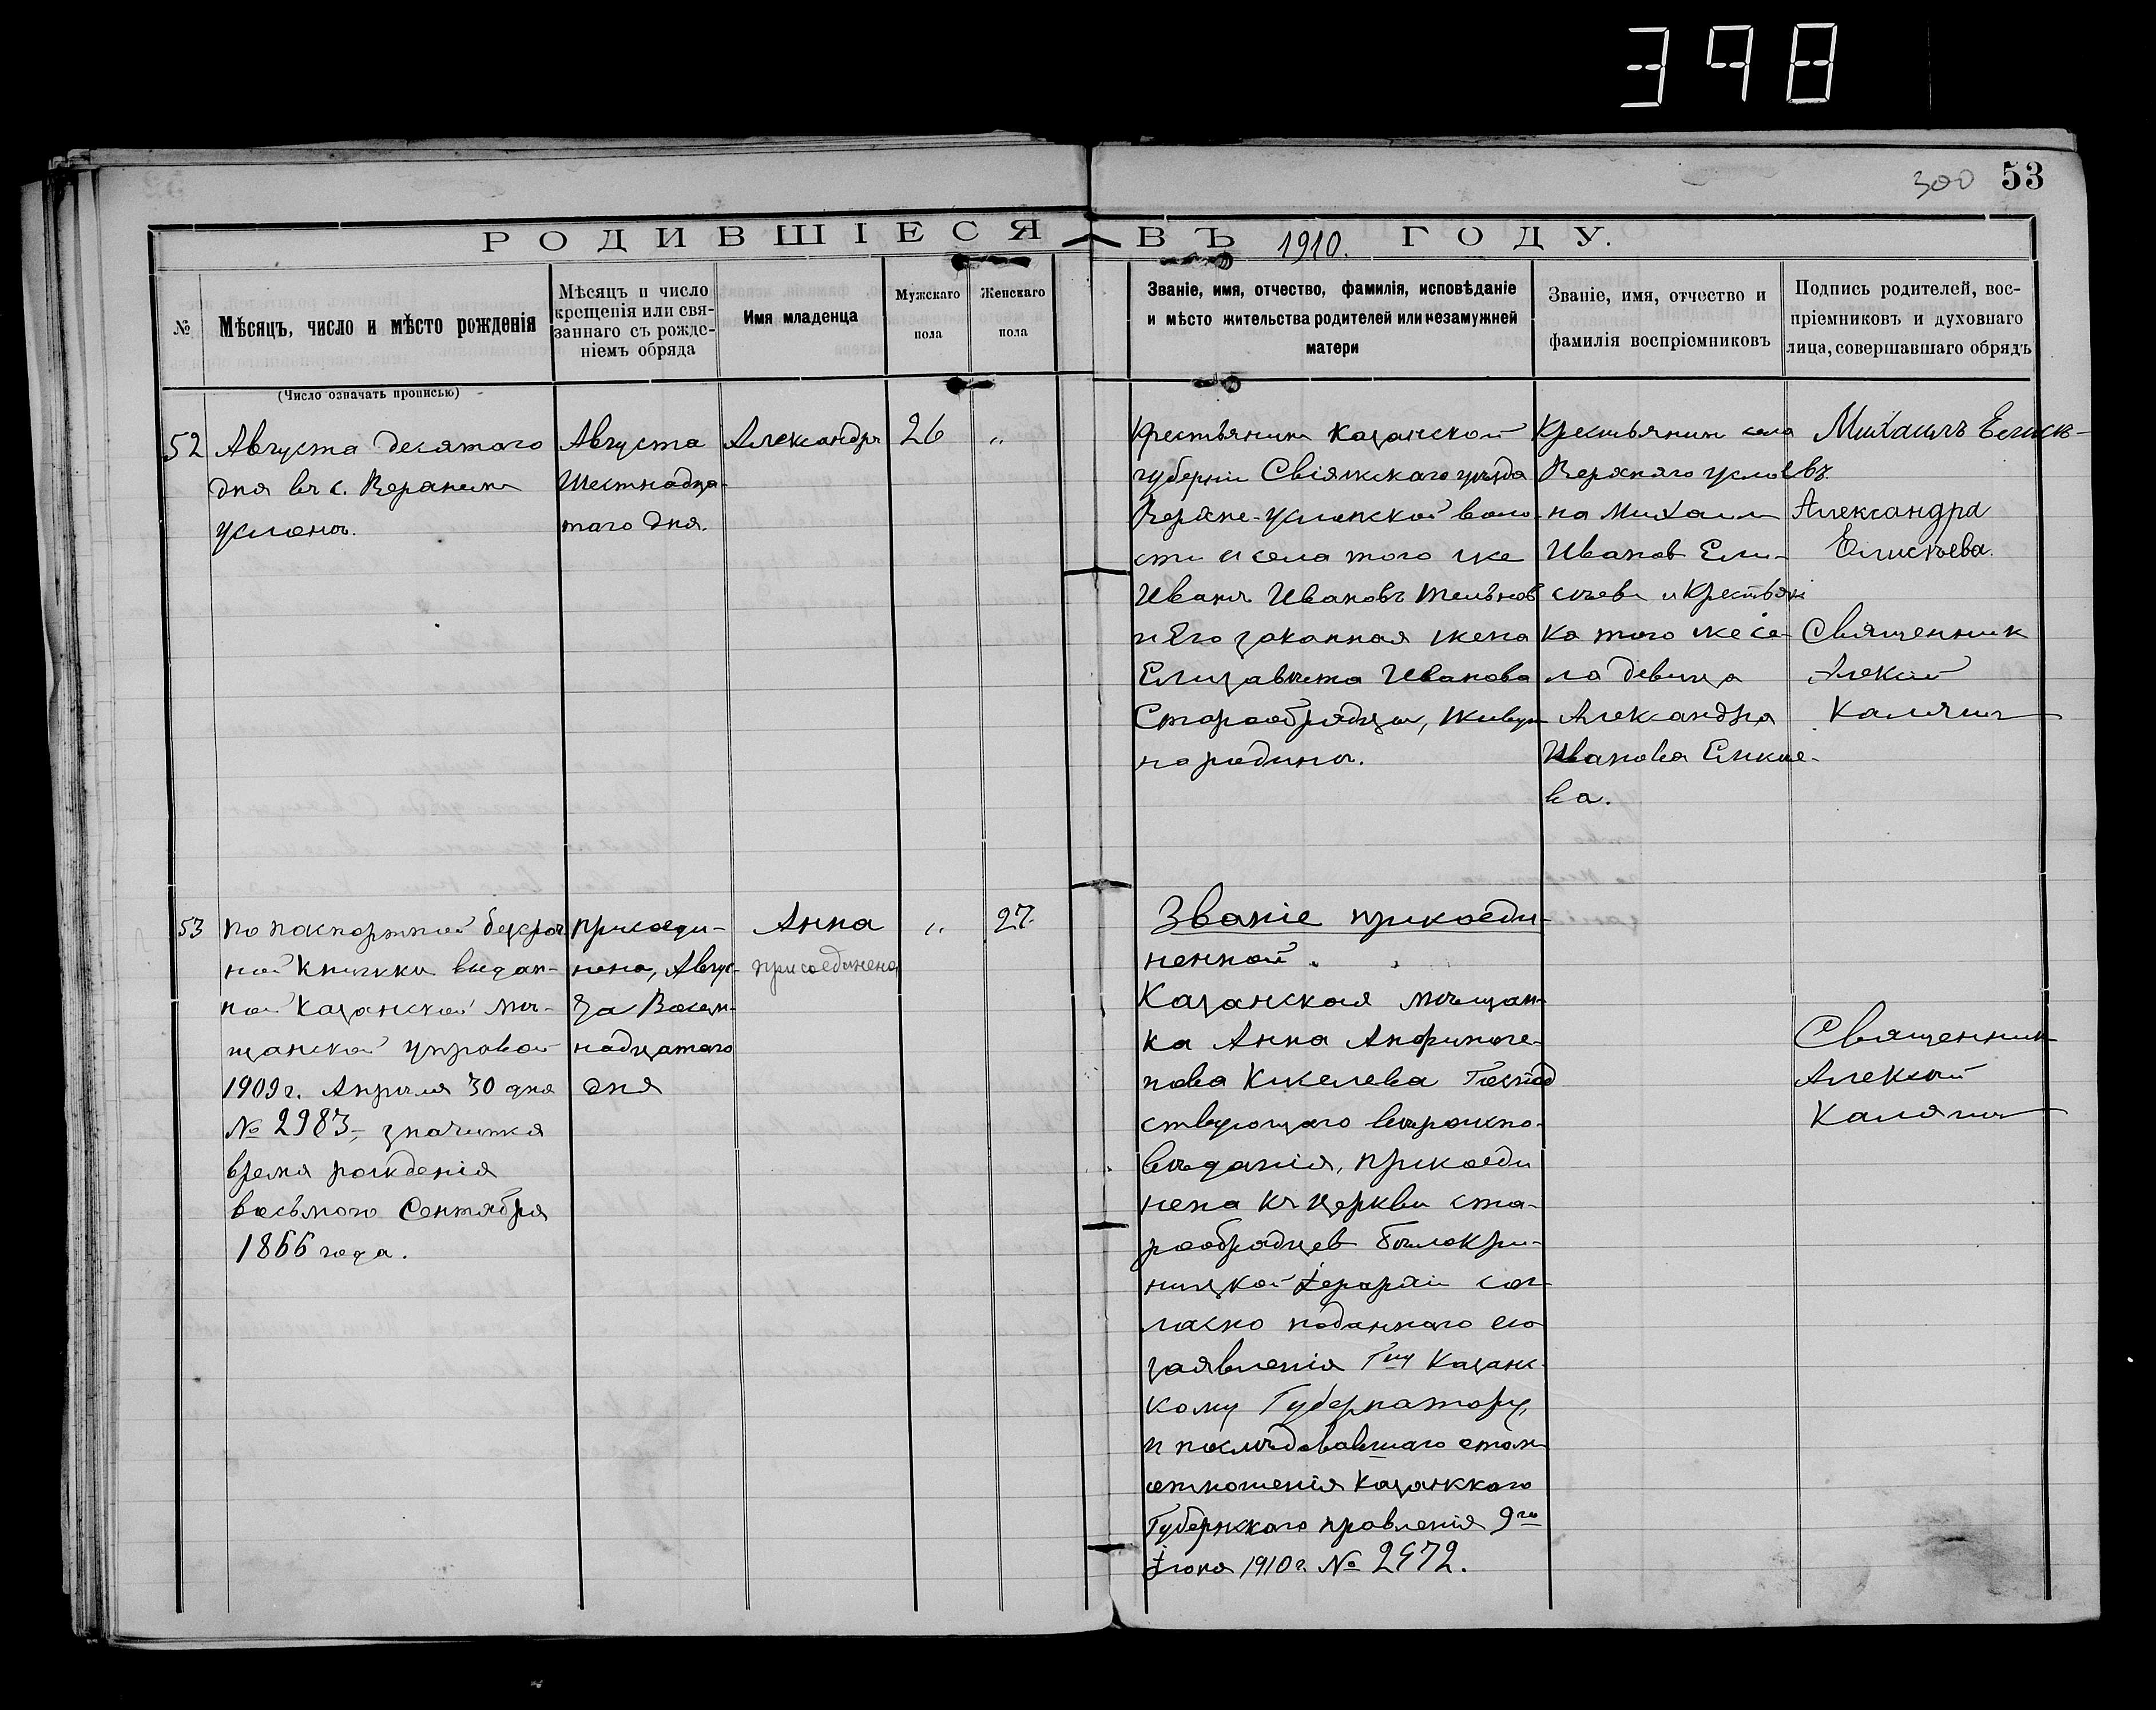 398
300 53
РОДИВШІЕСЯ ВЪ 1910. ГОДУ.
№
Мѣсяцъ, число и мѣсто рожденія
Мѣсяцъ и число
крещенія или свя-
заннаго съ рожде-
ніемъ обряда
Имя младенца
Мужскаго
пола
Женскаго
пола
Званіе, имя, отчество, фамилія, исповѣданіе
и мѣсто жительства родителей или незамужней
матери
Званіе, имя, отчество и
фамилія воспріемниковъ
Подпись родителей, вос-
пріемниковъ и духовнаго
лица, совершавшаго обрядъ
(Число означать прописью)
52
Августа десятаго
дня въ с. Верхнем
услонѣ.
Августа
Шестнадца-
таго дня.
Александръ
26
„
Крестьянинъ Казанской
губерніи Свіяжскаго уѣзда
Верхне-услонской воло-
сти и села того же
Иванъ Ивановъ
и Его законная жена
Елизавѣта Иванова
Старообрядцы, живут
на родинѣ.
Крестьянин села
Верхняго усло-
на Михаил
Иванов Ели-
сѣевъ и Крестьян
ка того же се-
ла девица
Александра
Иванова Елисѣе-
ва.
Михаилъ Елисѣ-
въ
Александра
Елисѣева.
Священник
Алексѣй
Калягин
53
по паспортной безсроч
ной Книжки выдан-
ной Казанской мѣ-
щанской управой
1909 г. Апрѣля 30 дня
№ 2983, значится
время рожденія
восьмого Сентября
1866 года.
присоеди-
нена, Авгус-
та Восем-
надцатаго
дня
Анна
присоединена
„
27.
Званіе присоеди-
ненной.
Казанская мѣщан-
ка Анна Анфиноге-
нова Киселева Господ
ствующаго вѣроиспо-
вѣданія, присоеди
нена къ церкви ста-
рообрядцев Бѣлокри-
ницкой Іерархіи сог-
ласно поданнаго ею
заявленія Гну Казанс-
кому Губернатору,
и послѣдовавшаго
отношенія Казанскаго
Губернскаго правленія 9го
Іюня 1910 г. № 2972.
Священник
Алексѣй
Калягин